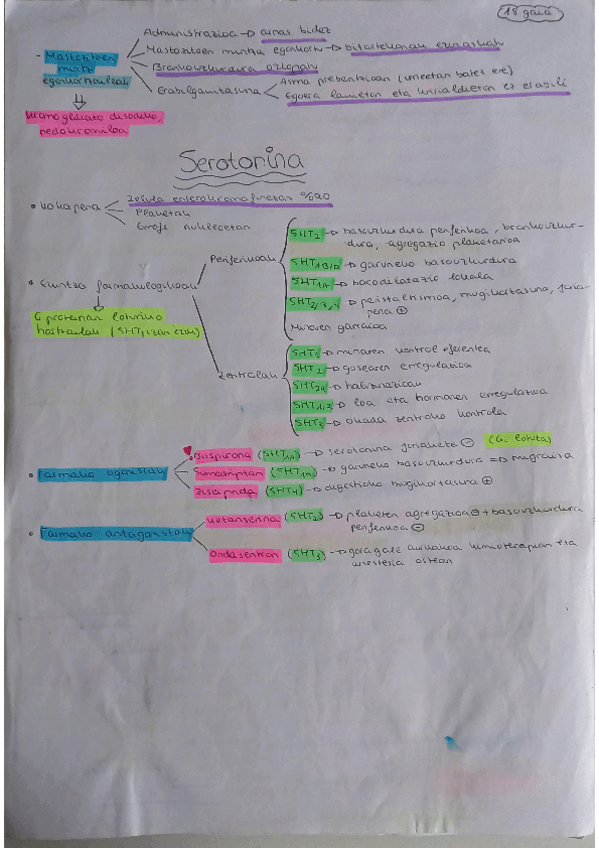 18 gaia
Administrazioa → arnas bidez
- Mastozitoen mintz egonkortzaileak
Mastozitoen mintza egonkortu → bitartekariak ez askatu
Bronkouzkurdura galarazi
Erabilgarritasuna
Asma prebentzioan (umeetan batez ere)
Egoera larrietan eta larrialdietan ez erabili
Kromoglikato disodiko, nedokromiloa
Serotonina
• Kokapena
Zelula enterokromafinetan %90
Plaketak
Errafe nukleoetan
• Ekintza farmakologikoak
G proteinari loturiko hartzaileak (5HT3 izan ezik)
Periferikoak
5HT2 → basouzkurdura periferikoa, bronkouzkurdura, agregazio plaketarioa
5HT1B/D → garuneko basouzkurdura
5HT1A → basodilatazio lokala
5HT2/3/4 → peristaltismoa, mugikortasuna, jariapena ⊕
Minaren garraioa
Zentralak
5HT1 → minaren kontrol eferentea
5HT2 → gosearen erregulazioa
5HT2A → haluzinazioak
5HT1,2 → loa eta hormonen erregulazioa
5HT3 → okada zentroko kontrola
• Farmako agonistak
Buspirona (5HT1A) → serotonina jariaketa ⊖ (G. lotuta)
Sumatriptan (5HT1D) → garuneko basouzkurdura ⇒ migraina
Zisaprida (5HT4) → digestioko mugikortasuna ⊕
• Farmako antagonistak
Ketanserina (5HT2) → plaketen agregazioa ⊖ + basouzkurdura periferikoa ⊖
Ondasentron (5HT3) → goragale aurkakoa kimioterapian eta anestesia ostean